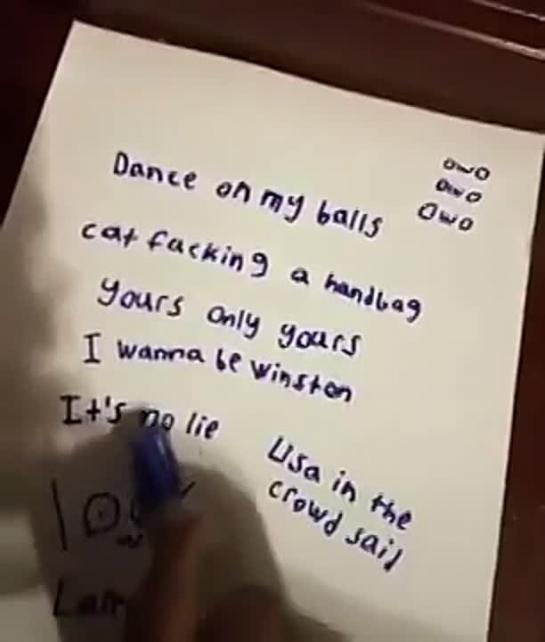 owo
owo
owo
Dance on my balls
cat facking a handbag
yours only yours
I wanna be winston
It's no lie
Lisa in the
crowd said